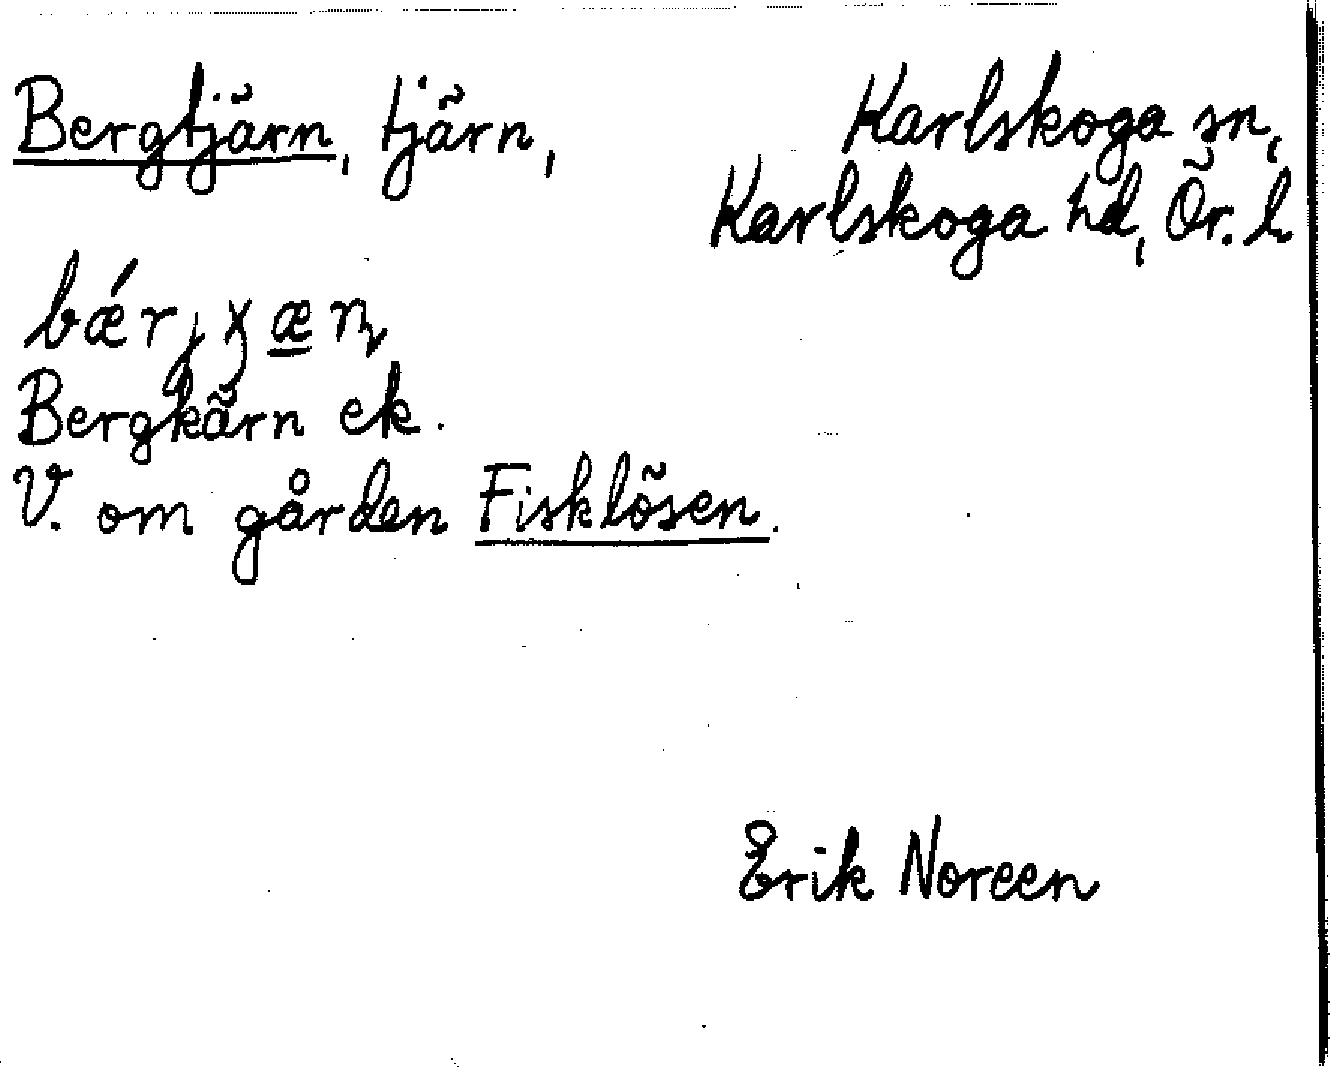 Bergtjärn, tjärn,
Karlskoga sn,
Karlskoga hd, Ör. l
Bergkärn ek.
V. om gården Fisklösen.
Erik Noreen